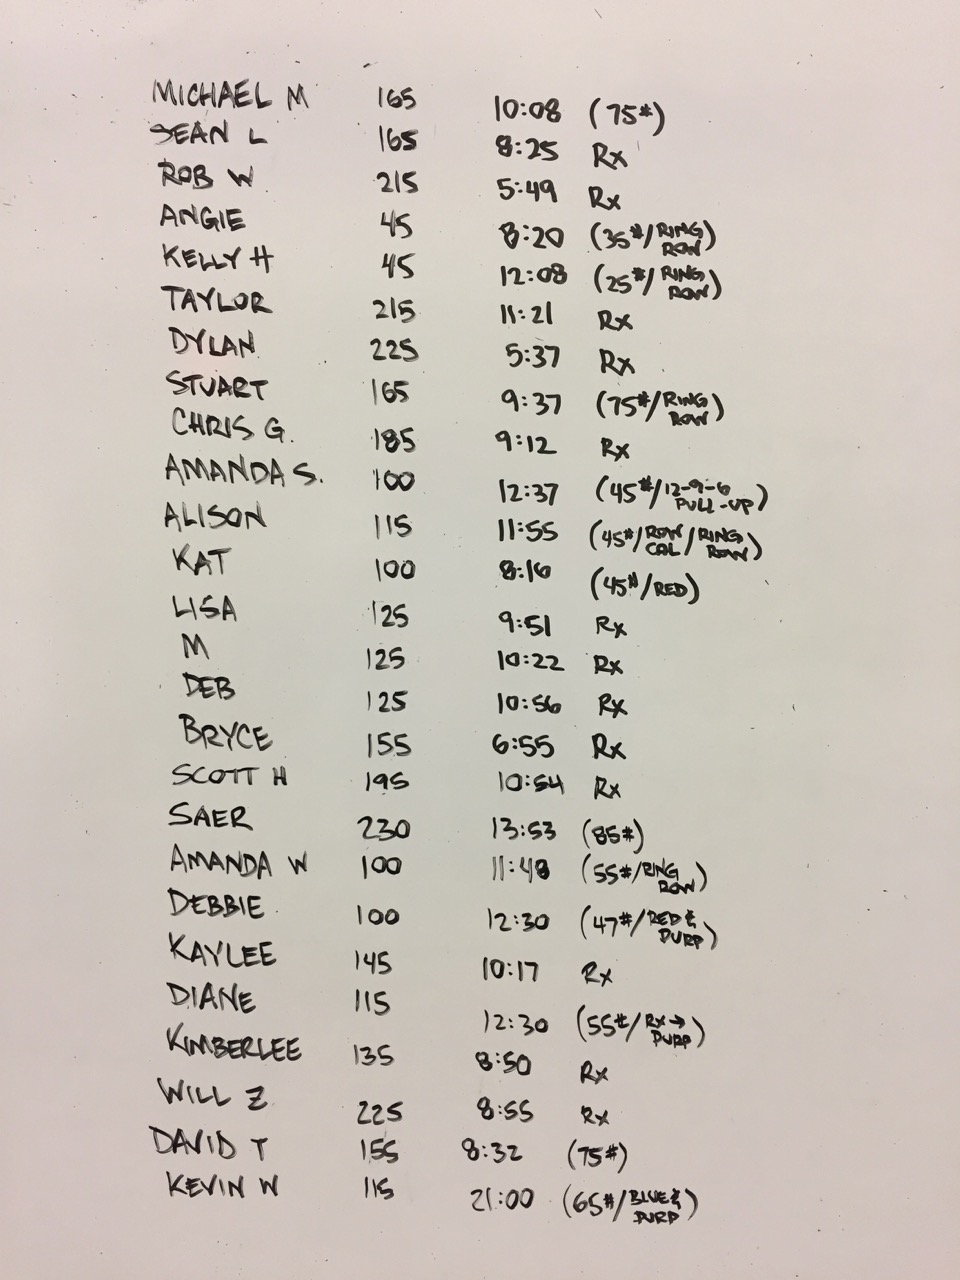 MICHAEL M 165 10:08 (75#)
SEAN L 165 8:25 Rx
ROB W 215 5:49 Rx
ANGIE 45 8:20 (35#/RING ROW)
KELLY H 45 12:08 (25#/RING ROW)
TAYLOR 215 11:21 Rx
DYLAN 225 5:37 Rx
STUART 165 9:37 (75#/RING ROW)
CHRIS G. 185 9:12 Rx
AMANDA S. 100 12:37 (45#/12-9-6 PULL-UP)
ALISON 115 11:55 (45#/ROW CAL/RING ROW)
KAT 100 8:16 (45#/RED)
LISA 125 9:51 Rx
M 125 10:22 Rx
DEB 125 10:56 Rx
BRYCE 155 6:55 Rx
SCOTT H 195 10:54 Rx
SAER 230 13:53 (85#)
AMANDA W 100 11:48 (55#/RING ROW)
DEBBIE 100 12:30 (47#/RED & PURP)
KAYLEE 145 10:17 Rx
DIANE 115 12:30 (55#/Rx→ PURP)
KIMBERLEE 135 8:50 Rx
WILL Z 225 8:55 Rx
DAVID T 155 8:32 (75#)
KEVIN W 115 21:00 (65#/BLUE & PURP)